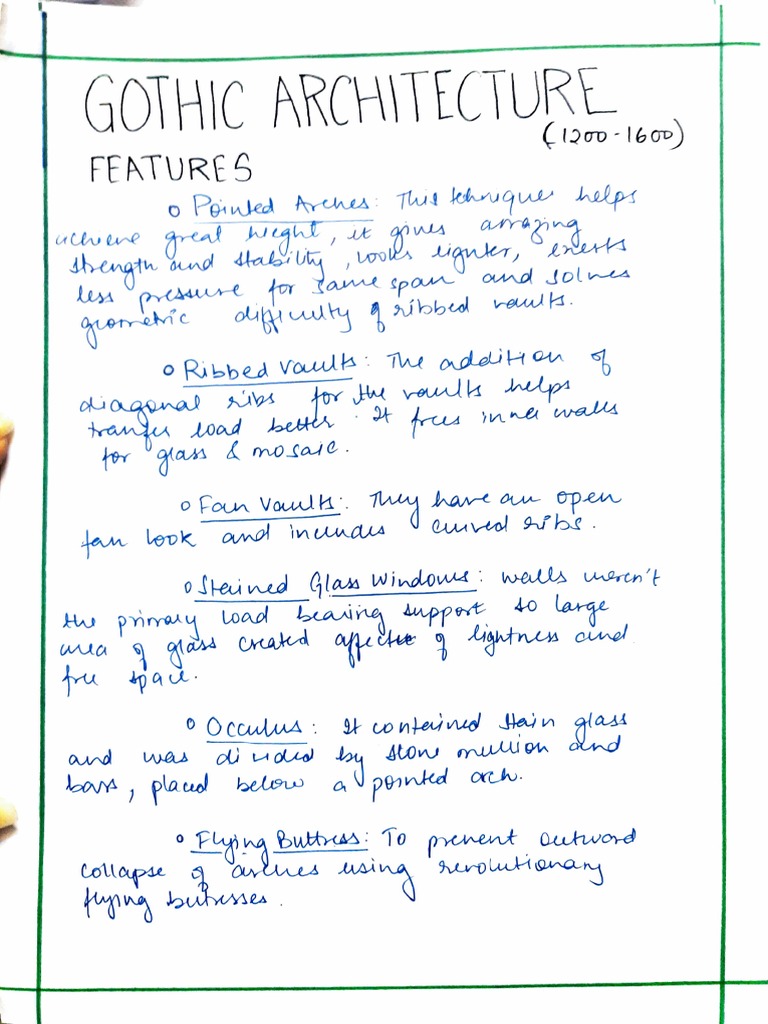 GOTHIC ARCHITECTURE
(1200-1600)
FEATURES
o Pointed Arches: This tehniques helps
acheive great hieght, it gives amazing
strength and stability, looks lighter, exerts
less pressure for same span and solves
geometric difficulty of ribbed vaults.
o Ribbed Vaults: The addition of
diagonal ribs for the vaults helps
tranfer load better. It frees inner walls
for glass & mosaic.
o Fan Vaults: They have an open
fan look and includes curved ribs.
o Stained Glass Windows: Walls weren't
the primary load bearing support so large
area of glass created affects of lightness and
free space.
o Occulus: It contained stain glass
and was divided by stone mullion and
bars, placed below a pointed arch.
o Flying Buttress: To prevent outward
collapse of arches using revolutionary
flying butresses.